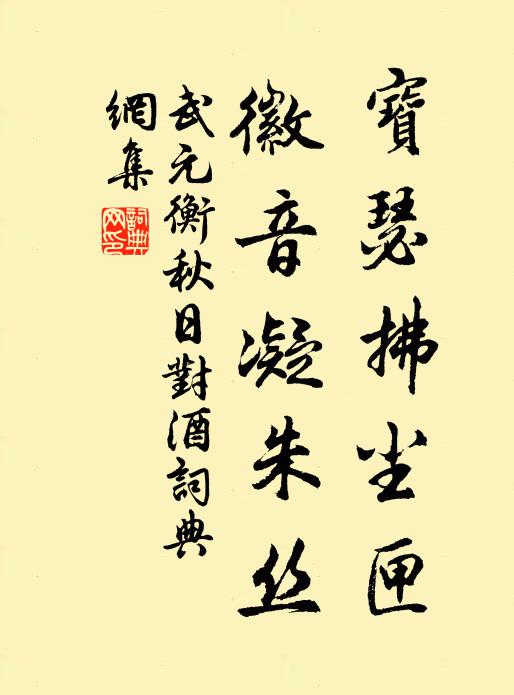 寶瑟拂尘匣
徽音凝朱丝
武元衡秋日對酒詞典
網集
詞典
网印